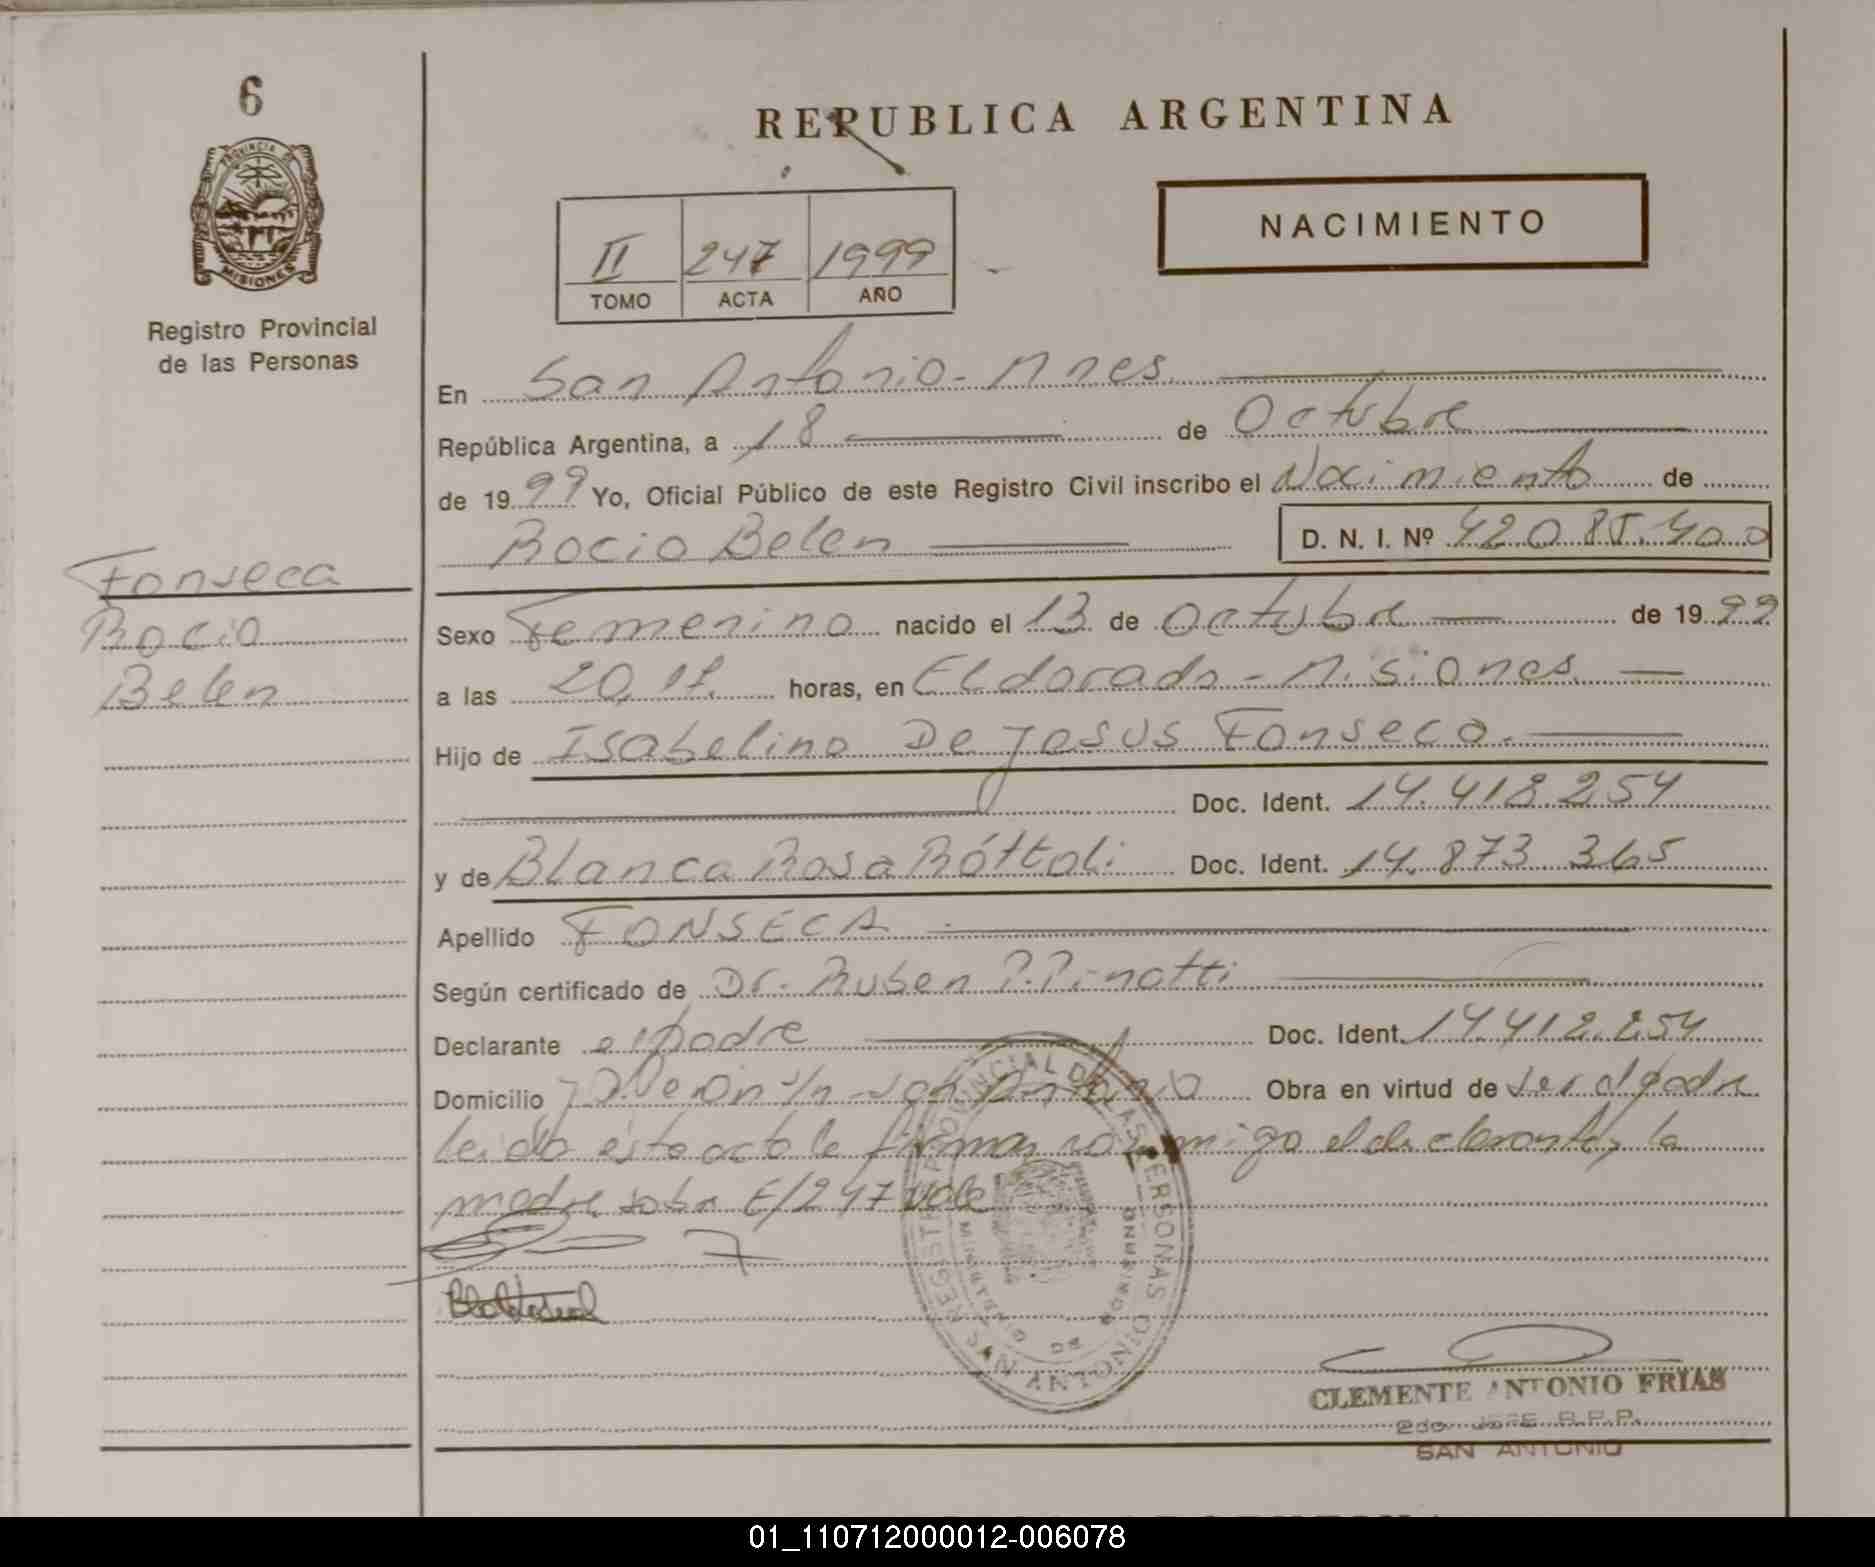 6
PROVINCIA DE
MISIONES
Registro Provincial
de las Personas
REPUBLICA ARGENTINA
NACIMIENTO
II 247 1999
TOMO ACTA AÑO
En San Antonio - Mnes.
República Argentina, a 18 de Octubre
de 1999 Yo, Oficial Público de este Registro Civil inscribo el Nacimiento de
Rocio Belen D. N. I. Nº 42085.400
Fonseca
Rocio
Belen
Sexo Femenino nacido el 13 de octubre de 1999
a las 20, horas, en Eldorado - Misiones
Hijo de Isabelino De Jesus Fonseca.
Doc. Ident. 14.418.254
y de Blanca Rosa Róttoli Doc. Ident. 14.873 365
Apellido FONSECA
Según certificado de Dr. Ruben P. Pinotti
Declarante el padre Doc. Ident. 14.412.254
Domicilio s/n - San Antonio Obra en virtud de ser el padre
leida este acta le firman conmigo el declarante y la
madre sobre E/247 vale
REGISTRO PROVINCIAL DE LAS PERSONAS
CLEMENTE ANTONIO FRIAS
2do. JEFE R.P.P.
SAN ANTONIO
01_110712000012-006078